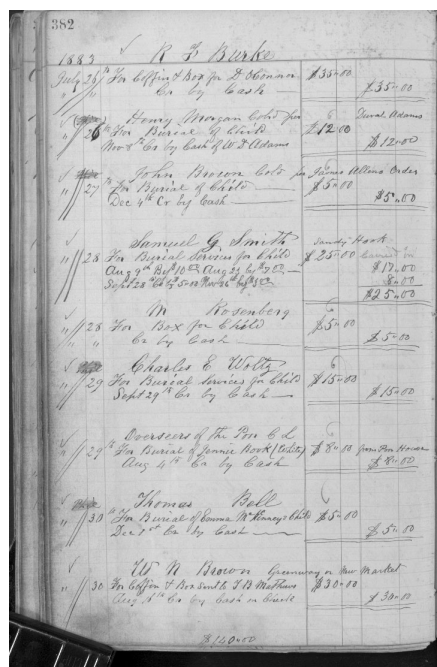 382
1883 R F Burke
July 26th For Coffin & Box for D OConnor $35.00
" " Cr by Cash $35.00
Henry Morgan Cold for Duval Adams
" 26th For Burial of Child $12.00
Nov 8th Cr by Cash of W D Adams $12.00
John Brown Cold for James Allens Order
" 27th For Burial of Child $5.00
Dec 4th Cr by Cash $5.00
Samuel G. Smith Sandy Hook
" 28 For Burial Services for Child $25.00
Aug 9th By $10.00 Aug 29 by $7.00 $17.00
Sept 28th by 5.00 Nov 26th by $3.00 8.00
$25.00
M Rosenberg
" 28 For Box for Child $5.00
" " Cr by Cash $5.00
Charles E Woltz
" 29 For Burial Services for Child $15.00
Sept 29th Cr by Cash $15.00
Overseers of the Poor Cd
" 29th For Burial of Book (White) $8.00 from Poor House
Aug 4th Cr by Cash $8.00
Thomas Bell
" 30 For Burial of Emma McKinneys Child $5.00
Dec Cr by Cash $5.00
W N Brown Greenway or New Market
" 30 For Coffin & Box Sent to J B Mathews $30.00
Aug Cr by Cash or Check $30.00
$140.00